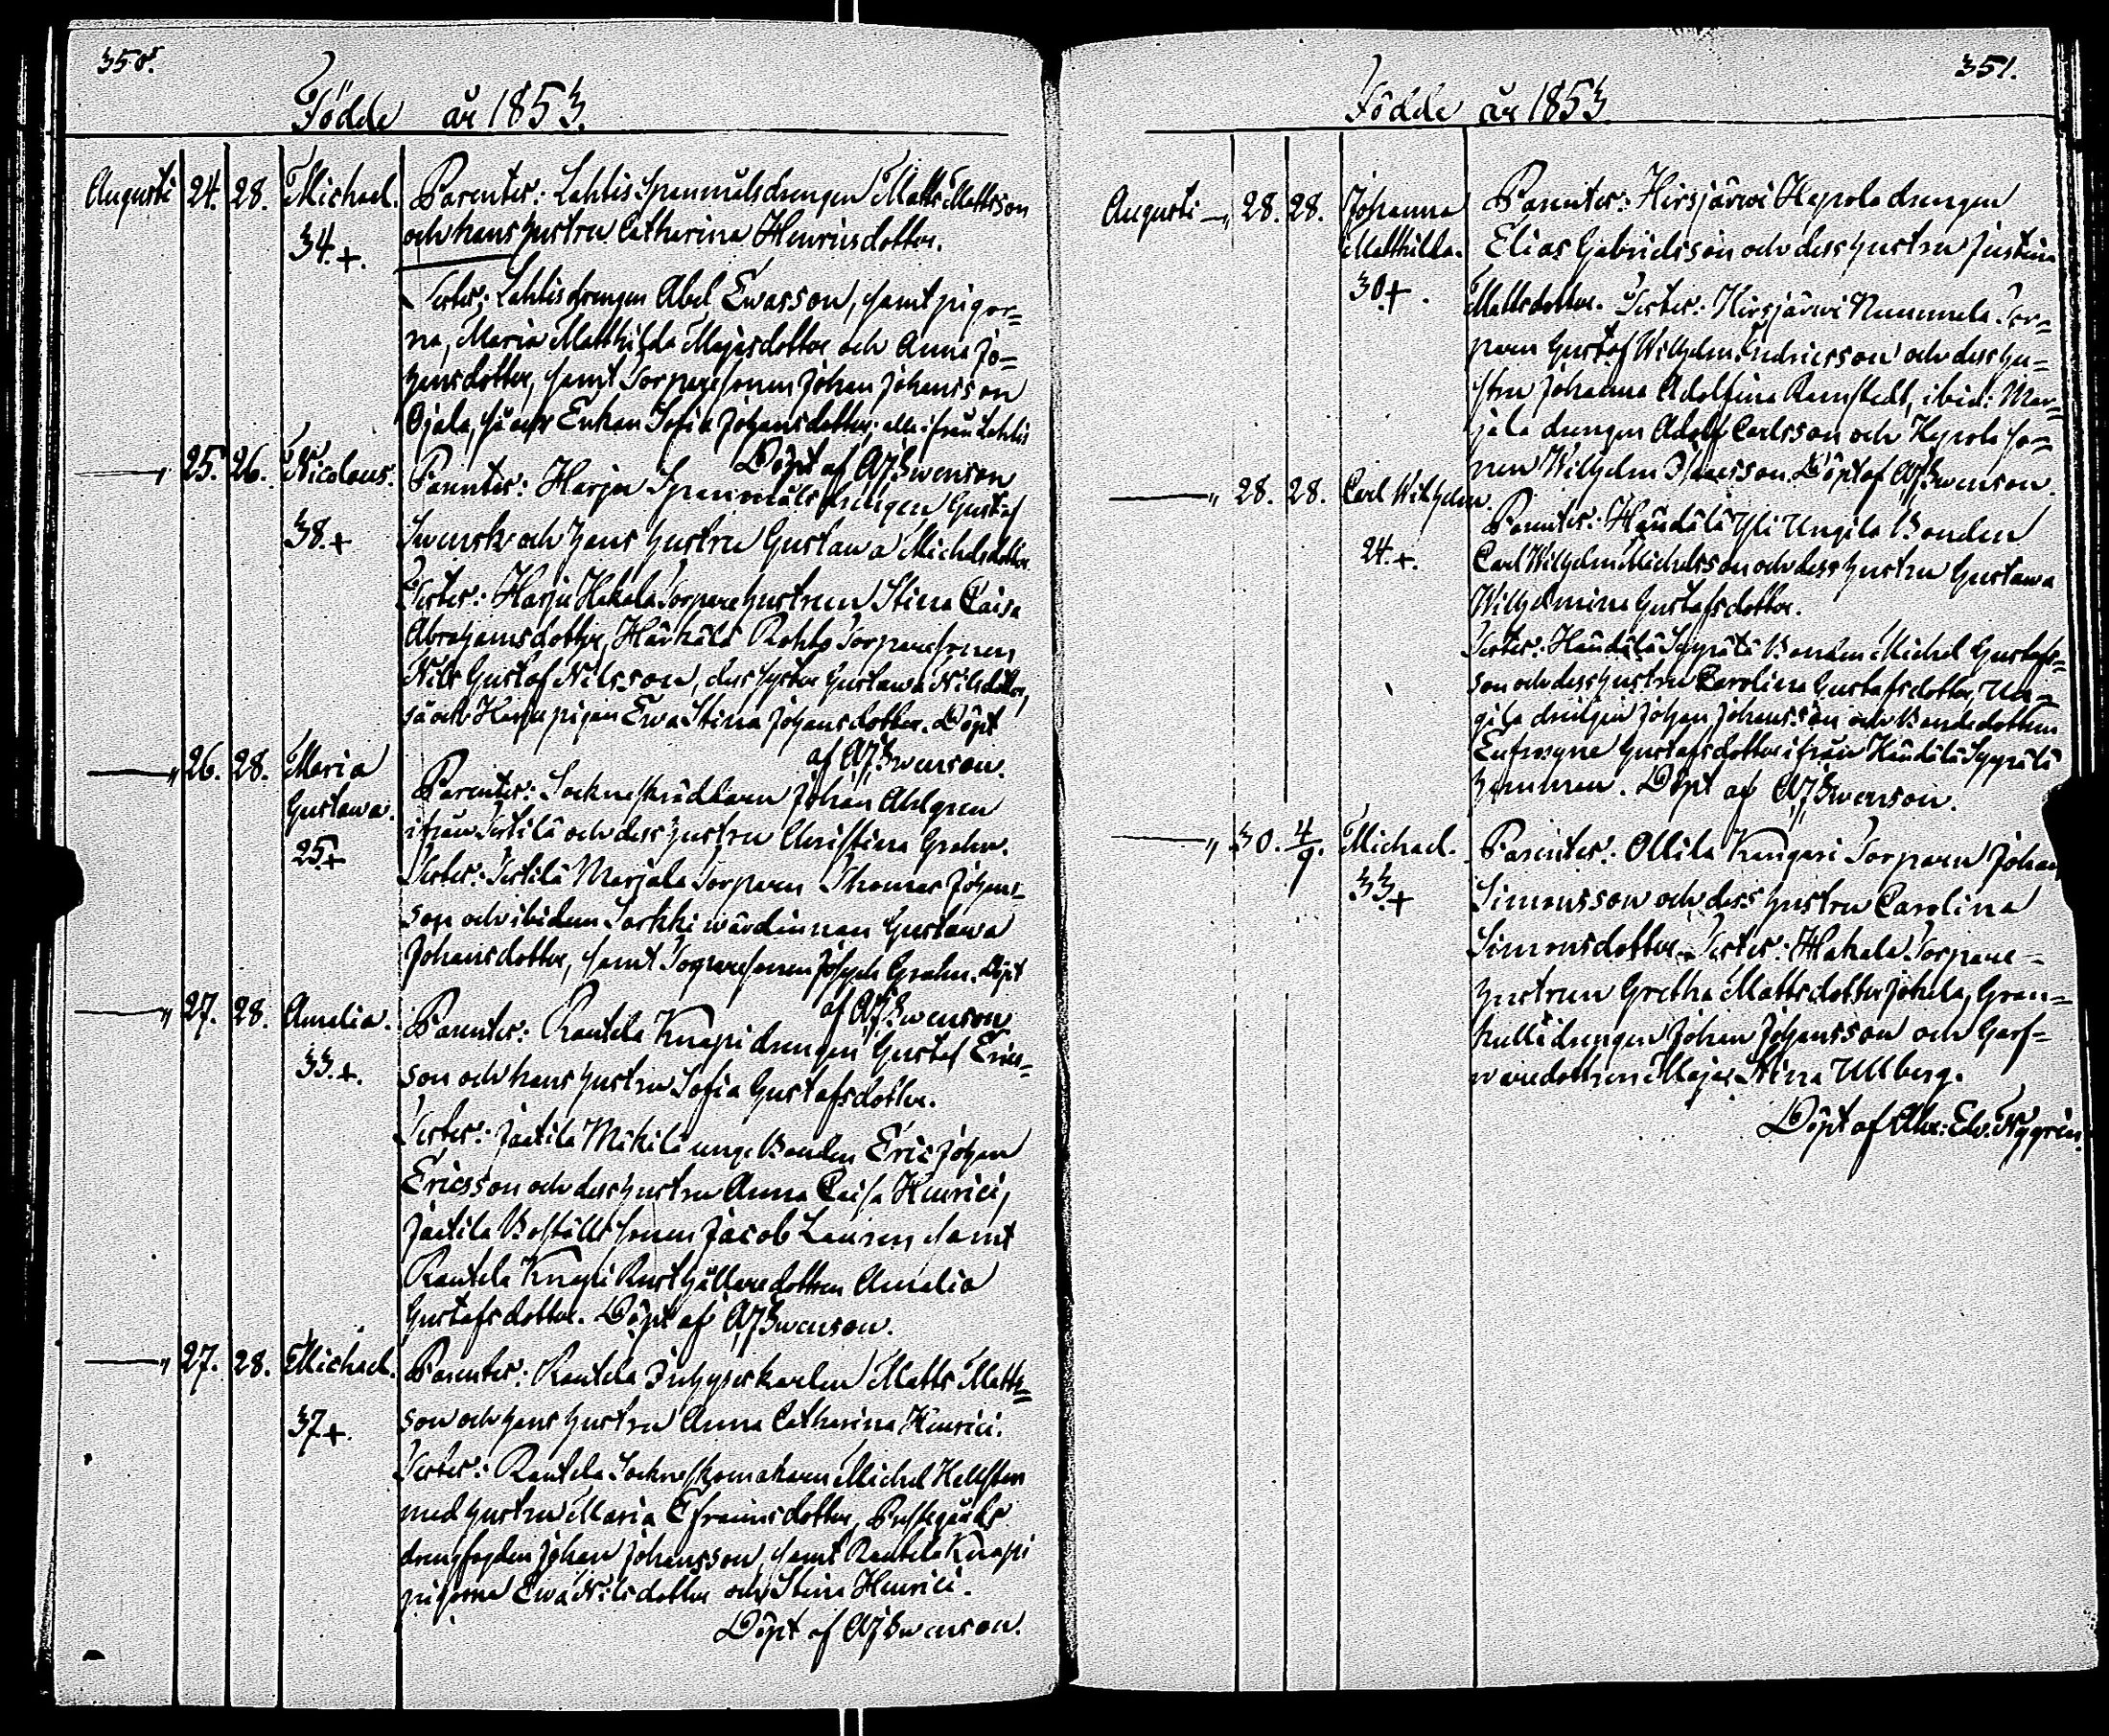 350.
Födde år 1853.
Augusti 24. 28. Michael. Parenter: Lahtis Spannmåls drengen Matts Mattsson
34.+. och hans hustru Catharina Henriksdotter.
Tester: Lahtis drengen Abel Ewasson, samt pigor=
na, Maria Matthilda Majasdotter och Anna Jo=
hansdotter, samt Torparesonen Johan Johansson
Ojala, så ock Enkan Sofia Johansdotter, alla ifrån Lahtis
Döpt af AJSwenson
—„ 25. 26. Nicolaus. Parenter: Harju Spannmåls drengen Gustaf
38.+ Swensk och hans hustru Gustawa Michelsdotter
Tester: Harju Hakala Torpare hustrun Stina Caisa
Abrahamsdotter, Härkälä Rohto Torparesonen
Nils Gustaf Nilsson, dess syster Gustawa Nilsdotter,
så ock Harju pigan Ewa Stina Johansdotter. Döpt
af AJSwenson.
—„ 26. 28. Maria Parenter: Sockneskräddaren Johan Ahlgren
Gustawa. ifrån Tertilä och dess hustru Christina Grahn.
25+ Tester: Tertilä Marjala Torparen Thomas Johans=
son och ibidem Sarkki wärdinnan Gustawa
Johansdotter, samt Torparesonen Joseph Grahn. Döpt
af AJSwenson
—„ 27. 28. Amalia. Parenter: Rautela Knapi drengen Gustaf Erics=
33.+. son och hans hustru Sofia Gustafsdotter.
Tester: Jaetila Mikila unge Bonden Eric Johan
Ericsson och dess hustru Anna Caisa Henrici,
Jaetila Boställs sonen Jacob Lauren samt
Rautela Knapi Rusthållaredottren Amalia
Gustafsdotter. Döpt af AJSwenson.
—„ 27. 28. Michael. Parenter: Rautela Inhyseskarlen Matts Matts=
37+. son och hans hustru Anna Catharina Henrici.
Tester: Rautela Sockneskomakaren Michel Hellsten
med hustru Maria Efraimsdotter, Prestegårds
drengfogden Johan Johansson, samt Rautela Knapi
pigorna Ewa Nilsdotter och Stina Henrici.
Döpt af AJSwenson.
351.
Födde år 1853
Augusti —„ 28. 28. Johanna Parenter: Hirsjärwi Hepola drengen
Matthilda. Elias Gabrielsson och dess hustru Justina
30.+. Mattsdotter. Tester: Hirsjärwi Nummela Tor=
paren Gustaf Wilhelm Andriersson och dess hu=
stru Johanna Adolfina Ramstedt, ibid: Mar=
jala drengen Adolf Carlsson och Hepola so=
nen Wilhelm Isacsson. Döpt af AJSwenson.
—„ 28. 28. Carl Wilhelm. Parenter: Haudälä Yli Ungila Bonden
24.+. Carl Wilhelm Michelsson och dess hustru Gustawa
Wilhelmina Gustafsdotter.
Tester: Haudälä Seppälä Bonden Michel Gustafs=
son och dess hustru Carolina Gustafsdotter, Un=
gila drengen Johan Johansson och Bondedottren
Eufrosyne Gustafsdotter ifrån Haudälä Seppälä
hemman. Döpt af AJSwenson.
—„ 30. 4/9. Michael. Parenter: Ollila Kangari Torparen Johan
33.+ Simonsson och dess hustru Carolina
Simonsdotter. Tester: Hakala Torpare=
hustrun Gretha Mattsdotter Johela, Gran=
kulla drengen Johan Johansson och Garf=
waredottren Maja Stina Ullberg.
Döpt af Alex: Edv. Nygren.